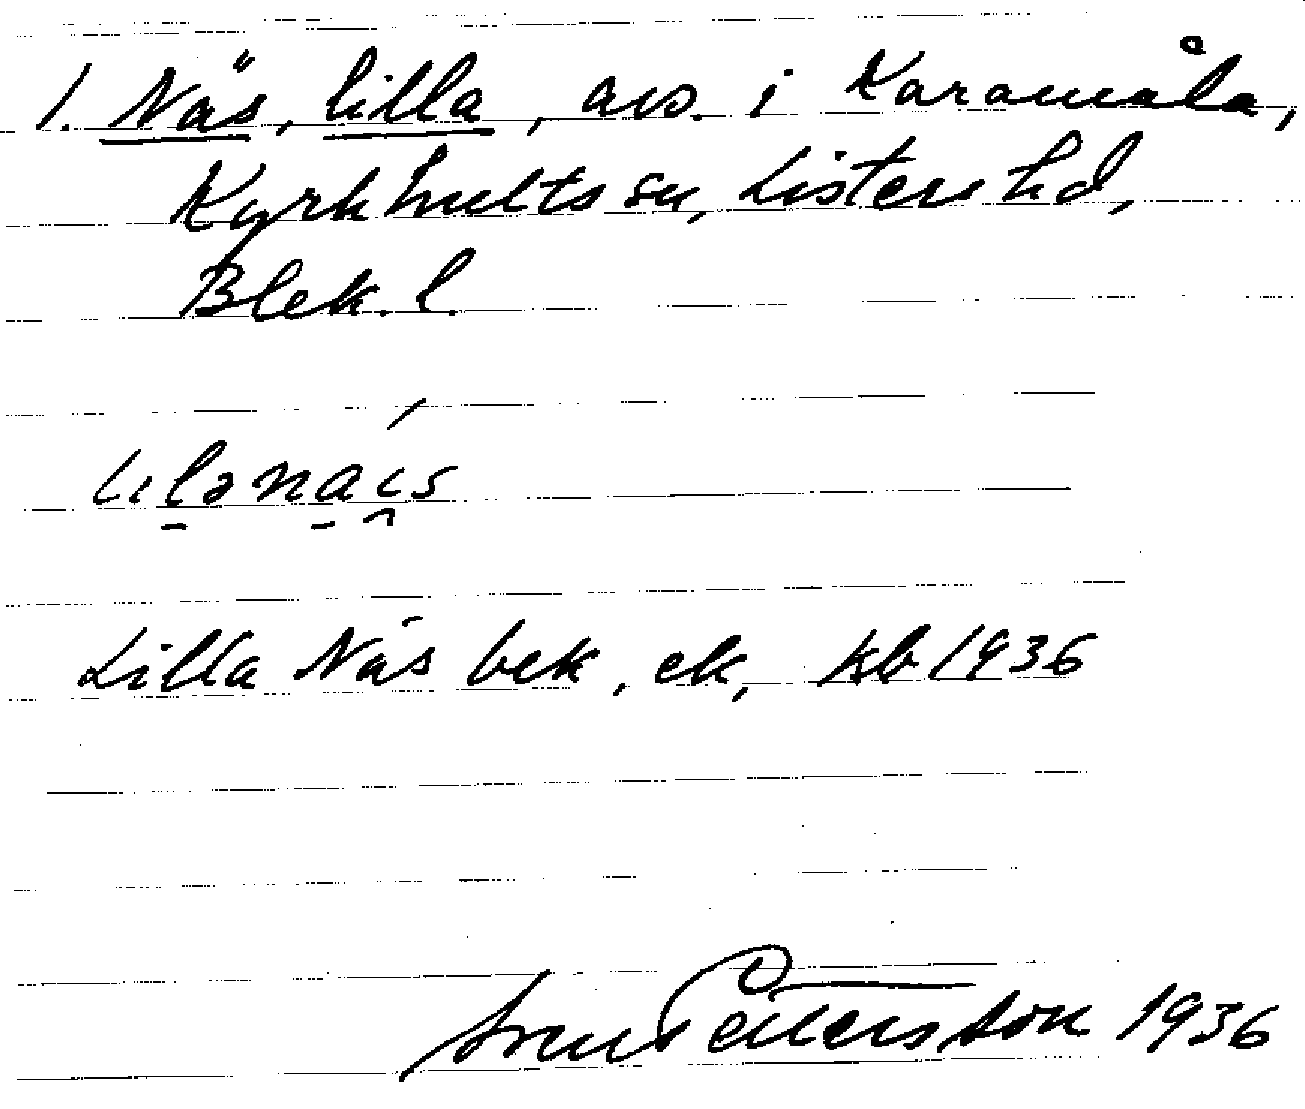 1. Näs, lilla, avs. i Karamåla,
Kyrkhults sn, Listers hd,
Blek. l.
Lilla Näs bek, ek, kb 1936
Pettersson 1936